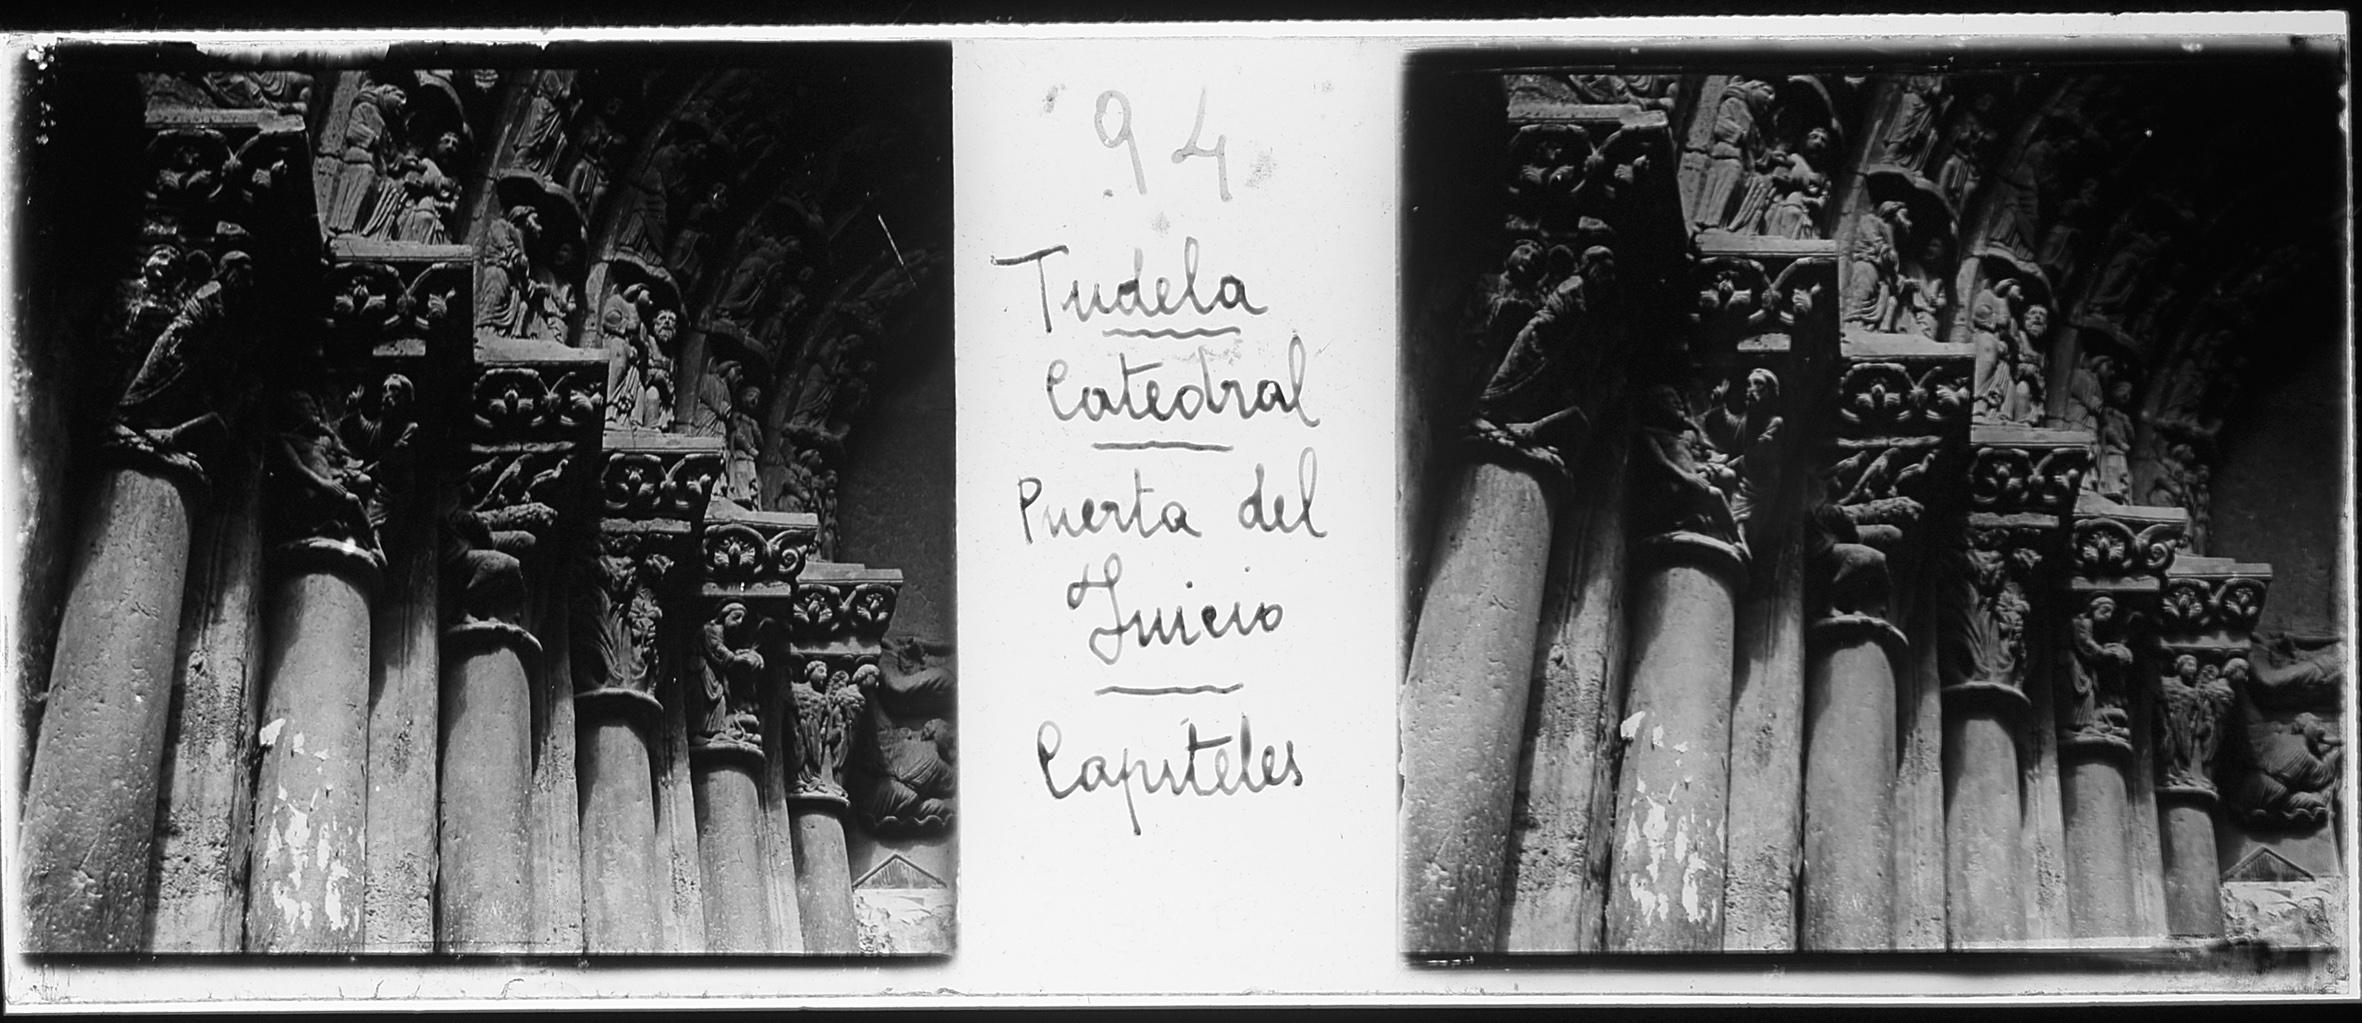 94
Tudela
Catedral
Puerta del
Juicio
Capiteles